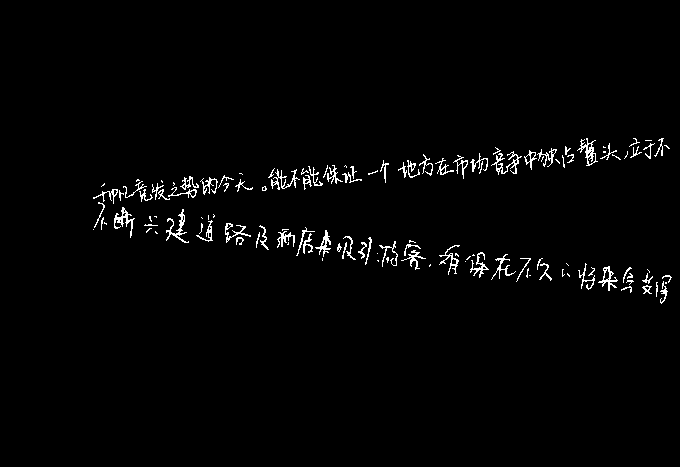 千帆竞发之势的今天。能不能保证一个地方在市场竞争中独占鳌头,立于不
不断兴建道路及酒店来吸引游客,有保在不久的将来会变得